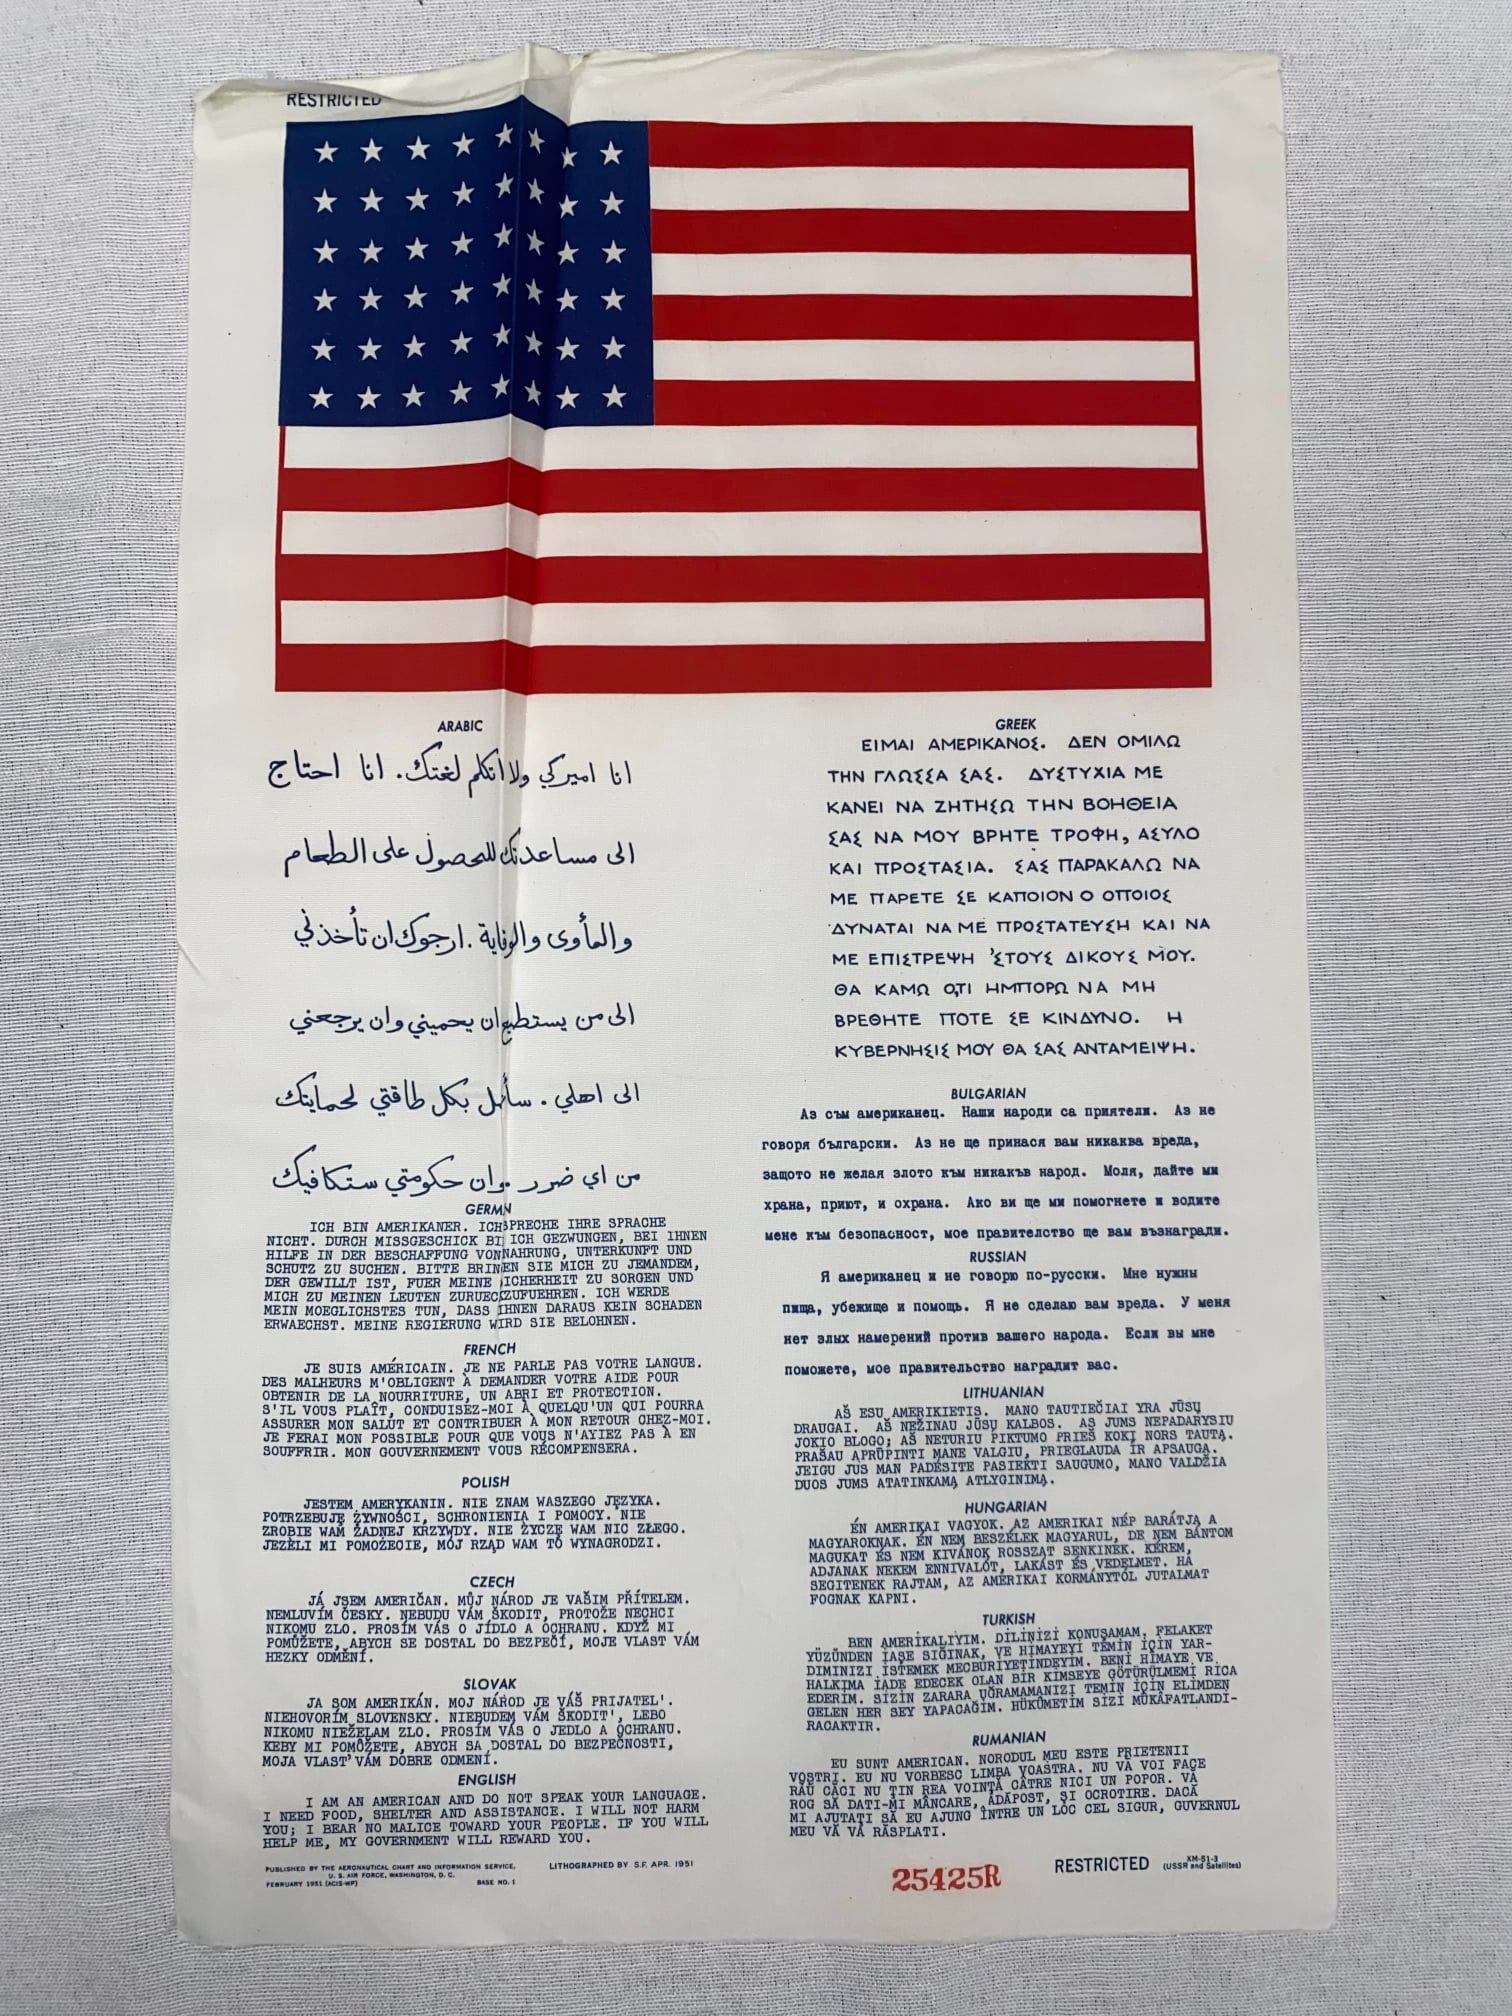 RESTRICTED
ARABIC
انا اميركي ولا اتكلم لغتك. انا احتاج
الى مساعدتك للحصول على الطعام
والمأوى والوقاية. ارجوك ان تأخذني
الى من يستطيع ان يحميني وان يرجعني
الى اهلي. سأعمل بكل طاقتي لحمايتك
من اي ضرر وان حكومتي ستكافيك
GERMN
ICH BIN AMERIKANER. ICH SPRECHE IHRE SPRACHE
NICHT. DURCH MISSGESCHICK BI ICH GEZWUNGEN, BEI IHNEN
HILFE IN DER BESCHAFFUNG VON NAHRUNG, UNTERKUNFT UND
SCHUTZ ZU SUCHEN. BITTE BRINEN SIE MICH ZU JEMANDEM,
DER GEWILLT IST, FUER MEINE ICHERHEIT ZU SORGEN UND
MICH ZU MEINEN LEUTEN ZURUECKZUFUEHREN. ICH WERDE
MEIN MOEGLICHSTES TUN, DASS IHNEN DARAUS KEIN SCHADEN
ERWAECHST. MEINE REGIERUNG WIRD SIE BELOHNEN.
FRENCH
JE SUIS AMÉRICAIN. JE NE PARLE PAS VOTRE LANGUE.
DES MALHEURS M'OBLIGENT À DEMANDER VOTRE AIDE POUR
OBTENIR DE LA NOURRITURE, UN ABRI ET PROTECTION.
S'IL VOUS PLAÎT, CONDUISEZ-MOI À QUELQU'UN QUI POURRA
ASSURER MON SALUT ET CONTRIBUER À MON RETOUR CHEZ-MOI.
JE FERAI MON POSSIBLE POUR QUE VOUS N'AYIEZ PAS À EN
SOUFFRIR. MON GOUVERNEMENT VOUS RÉCOMPENSERA.
POLISH
JESTEM AMERYKANIN. NIE ZNAM WASZEGO JĘZYKA.
POTRZEBUJĘ ŻYWNOŚCI, SCHRONIENIA I POMOCY. NIE
ZROBIE WAM ŻADNEJ KRZYWDY. NIE ŻYCZĘ WAM NIC ZŁEGO.
JEŻELI MI POMOŻECIE, MÓJ RZĄD WAM TO WYNAGRODZI.
CZECH
JÁ JSEM AMERIČAN. MŮJ NÁROD JE VAŠIM PŘÍTELEM.
NEMLUVÍM ČESKY. NEBUDU VÁM ŠKODIT, PROTOŽE NECHCI
NIKOMU ZLO. PROSÍM VÁS O JÍDLO A OCHRANU. KDYŽ MI
POMŮŽETE, ABYCH SE DOSTAL DO BEZPEČÍ, MOJE VLAST VÁM
HEZKY ODMĚNÍ.
SLOVAK
JA SOM AMERIKÁN. MOJ NÁROD JE VÁŠ PRIJATEL'.
NIEHOVORÍM SLOVENSKY. NIEBUDEM VÁM ŠKODIT', LEBO
NIKOMU NIEŽELAM ZLO. PROSÍM VÁS O JEDLO A OCHRANU.
KEBY MI POMÔŽETE, ABYCH SA DOSTAL DO BEZPEČNOSTI,
MOJA VLAST' VÁM DOBRE ODMENÍ.
ENGLISH
I AM AN AMERICAN AND DO NOT SPEAK YOUR LANGUAGE.
I NEED FOOD, SHELTER AND ASSISTANCE. I WILL NOT HARM
YOU; I BEAR NO MALICE TOWARD YOUR PEOPLE. IF YOU WILL
HELP ME, MY GOVERNMENT WILL REWARD YOU.
PUBLISHED BY THE AERONAUTICAL CHART AND INFORMATION SERVICE,
U. S. AIR FORCE, WASHINGTON, D. C.
FEBRUARY 1951 (ACIS-WP) BASE NO. 1
LITHOGRAPHED BY S.F. APR. 1951
GREEK
ΕΙΜΑΙ ΑΜΕΡΙΚΑΝΟΣ. ΔΕΝ ΟΜΙΛΩ
ΤΗΝ ΓΛΩΣΣΑ ΣΑΣ. ΔΥΣΤΥΧΙΑ ΜΕ
ΚΑΝΕΙ ΝΑ ΖΗΤΗΣΩ ΤΗΝ ΒΟΗΘΕΙΑ
ΣΑΣ ΝΑ ΜΟΥ ΒΡΗΤΕ ΤΡΟΦΗ, ΑΣΥΛΟ
ΚΑΙ ΠΡΟΣΤΑΣΙΑ. ΣΑΣ ΠΑΡΑΚΑΛΩ ΝΑ
ΜΕ ΠΑΡΕΤΕ ΣΕ ΚΑΠΟΙΟΝ Ο ΟΠΟΙΟΣ
ΔΥΝΑΤΑΙ ΝΑ ΜΕ ΠΡΟΣΤΑΤΕΥΣΗ ΚΑΙ ΝΑ
ΜΕ ΕΠΙΣΤΡΕΨΗ 'ΣΤΟΥΣ ΔΙΚΟΥΣ ΜΟΥ.
ΘΑ ΚΑΜΩ Ο,ΤΙ ΗΜΠΟΡΩ ΝΑ ΜΗ
ΒΡΕΘΗΤΕ ΠΟΤΕ ΣΕ ΚΙΝΔΥΝΟ. Η
ΚΥΒΕΡΝΗΣΙΣ ΜΟΥ ΘΑ ΣΑΣ ΑΝΤΑΜΕΙΨΗ.
BULGARIAN
Аз съм американец. Наши народи са приятели. Аз не
говоря български. Аз не ще принася вам никаква вреда,
защото не желая злото към никакъв народ. Моля, дайте ми
храна, приют, и охрана. Ако ви ще ми помогнете и водите
мене към безопасност, мое правителство ще вам възнагради.
RUSSIAN
Я американец и не говорю по-русски. Мне нужны
пища, убежище и помощь. Я не сделаю вам вреда. У меня
нет злых намерений против вашего народа. Если вы мне
поможете, мое правительство наградит вас.
LITHUANIAN
AŠ ESU AMERIKIETIS. MANO TAUTIEČIAI YRA JŪSŲ
DRAUGAI. AŠ NEŽINAU JŪSŲ KALBOS. AŠ JUMS NEPADARYSIU
JOKIO BLOGO; AŠ NETURIU PIKTUMO PRIEŠ KOKĮ NORS TAUTĄ.
PRAŠAU APRŪPINTI MANE VALGIU, PRIEGLAUDA IR APSAUGA.
JEIGU JUS MAN PADĖSITE PASIEKTI SAUGUMO, MANO VALDŽIA
DUOS JUMS ATATINKAMĄ ATLYGINIMĄ.
HUNGARIAN
ÉN AMERIKAI VAGYOK. AZ AMERIKAI NÉP BARÁTJA A
MAGYAROKNAK. ÉN NEM BESZÉLEK MAGYARUL, DE NEM BÁNTOM
MAGUKAT ÉS NEM KIVÁNOK ROSSZAT SENKINEK. KÉREM,
ADJANAK NEKEM ENNIVALÓT, LAKÁST ÉS VEDELMET. HA
SEGITENEK RAJTAM, AZ AMERIKAI KORMÁNYTÓL JUTALMAT
FOGNAK KAPNI.
TURKISH
BEN AMERİKALIYIM. DİLİNİZİ KONUŞAMAM. FELAKET
YÜZÜNDEN İAŞE SIĞINAK, VE HİMAYEYİ TEMİN İÇİN YAR-
DIMINIZI İSTEMEK MECBURİYETİNDEYİM. BENİ HİMAYE VE
HALKIMA İADE EDECEK OLAN BİR KİMSEYE GÖTÜRÜLMEMİ RİCA
EDERİM. SİZİN ZARARA UĞRAMAMANIZI TEMİN İÇİN ELİMDEN
GELEN HER SEY YAPACAĞIM. HÜKÛMETİM SİZİ MÜKÂFATLANDI-
RACAKTIR.
RUMANIAN
EU SUNT AMERICAN. NORODUL MEU ESTE PRIETENII
VOSTRI. EU NU VORBESC LIMBA VOASTRA. NU VĂ VOI FACE
RĂU CĂCI NU ȚIN REA VOINȚĂ CĂTRE NICI UN POPOR. VĂ
ROG SĂ DAȚI-MI MÂNCARE, ADĂPOST, ȘI OCROTIRE. DACĂ
MI AJUTAȚI SĂ EU AJUNG ÎNTRE UN LOC CEL SIGUR, GUVERNUL
MEU VĂ VA RĂSPLĂTI.
25425R
RESTRICTED XM-51-3
(USSR and Satellites)